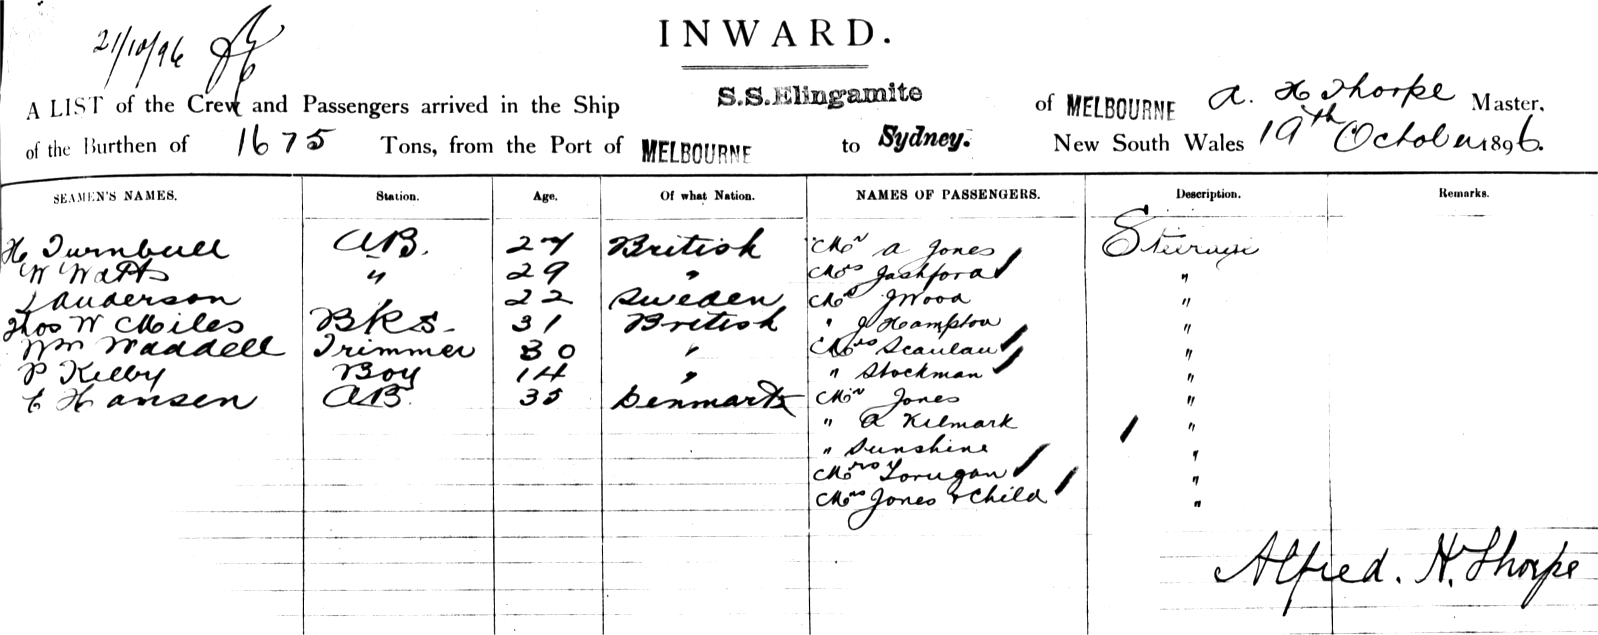 INWARD.
21/10/96
A LIST of the Crew and Passengers arrived in the Ship S.S.Elingamite of MELBOURNE A. H Thorpe Master,
of the Burthen of 1675 Tons, from the Port of MELBOURNE to Sydney. New South Wales 19th October 1896.
SEAMEN'S NAMES. Station. Age. Of what Nation. NAMES OF PASSENGERS. Description. Remarks.
H Turnbull AB. 27 British Mr A Jones Steerage
W Watts " 29 " Mrs "
Anderson 22 Sweden Mr J Wood "
Thos W Miles BKS. 31 British " J Hampton "
Wm Waddell Trimmer 30 " Mrs Scanlan "
P Kelby Boy 14 " " Stockman "
C Hansen AB. 35 Denmark Mr Jones "
" A Kilmark "
" Sunshine "
Mrs "
Mrs Jones & Child "
Alfred. H. Thorpe